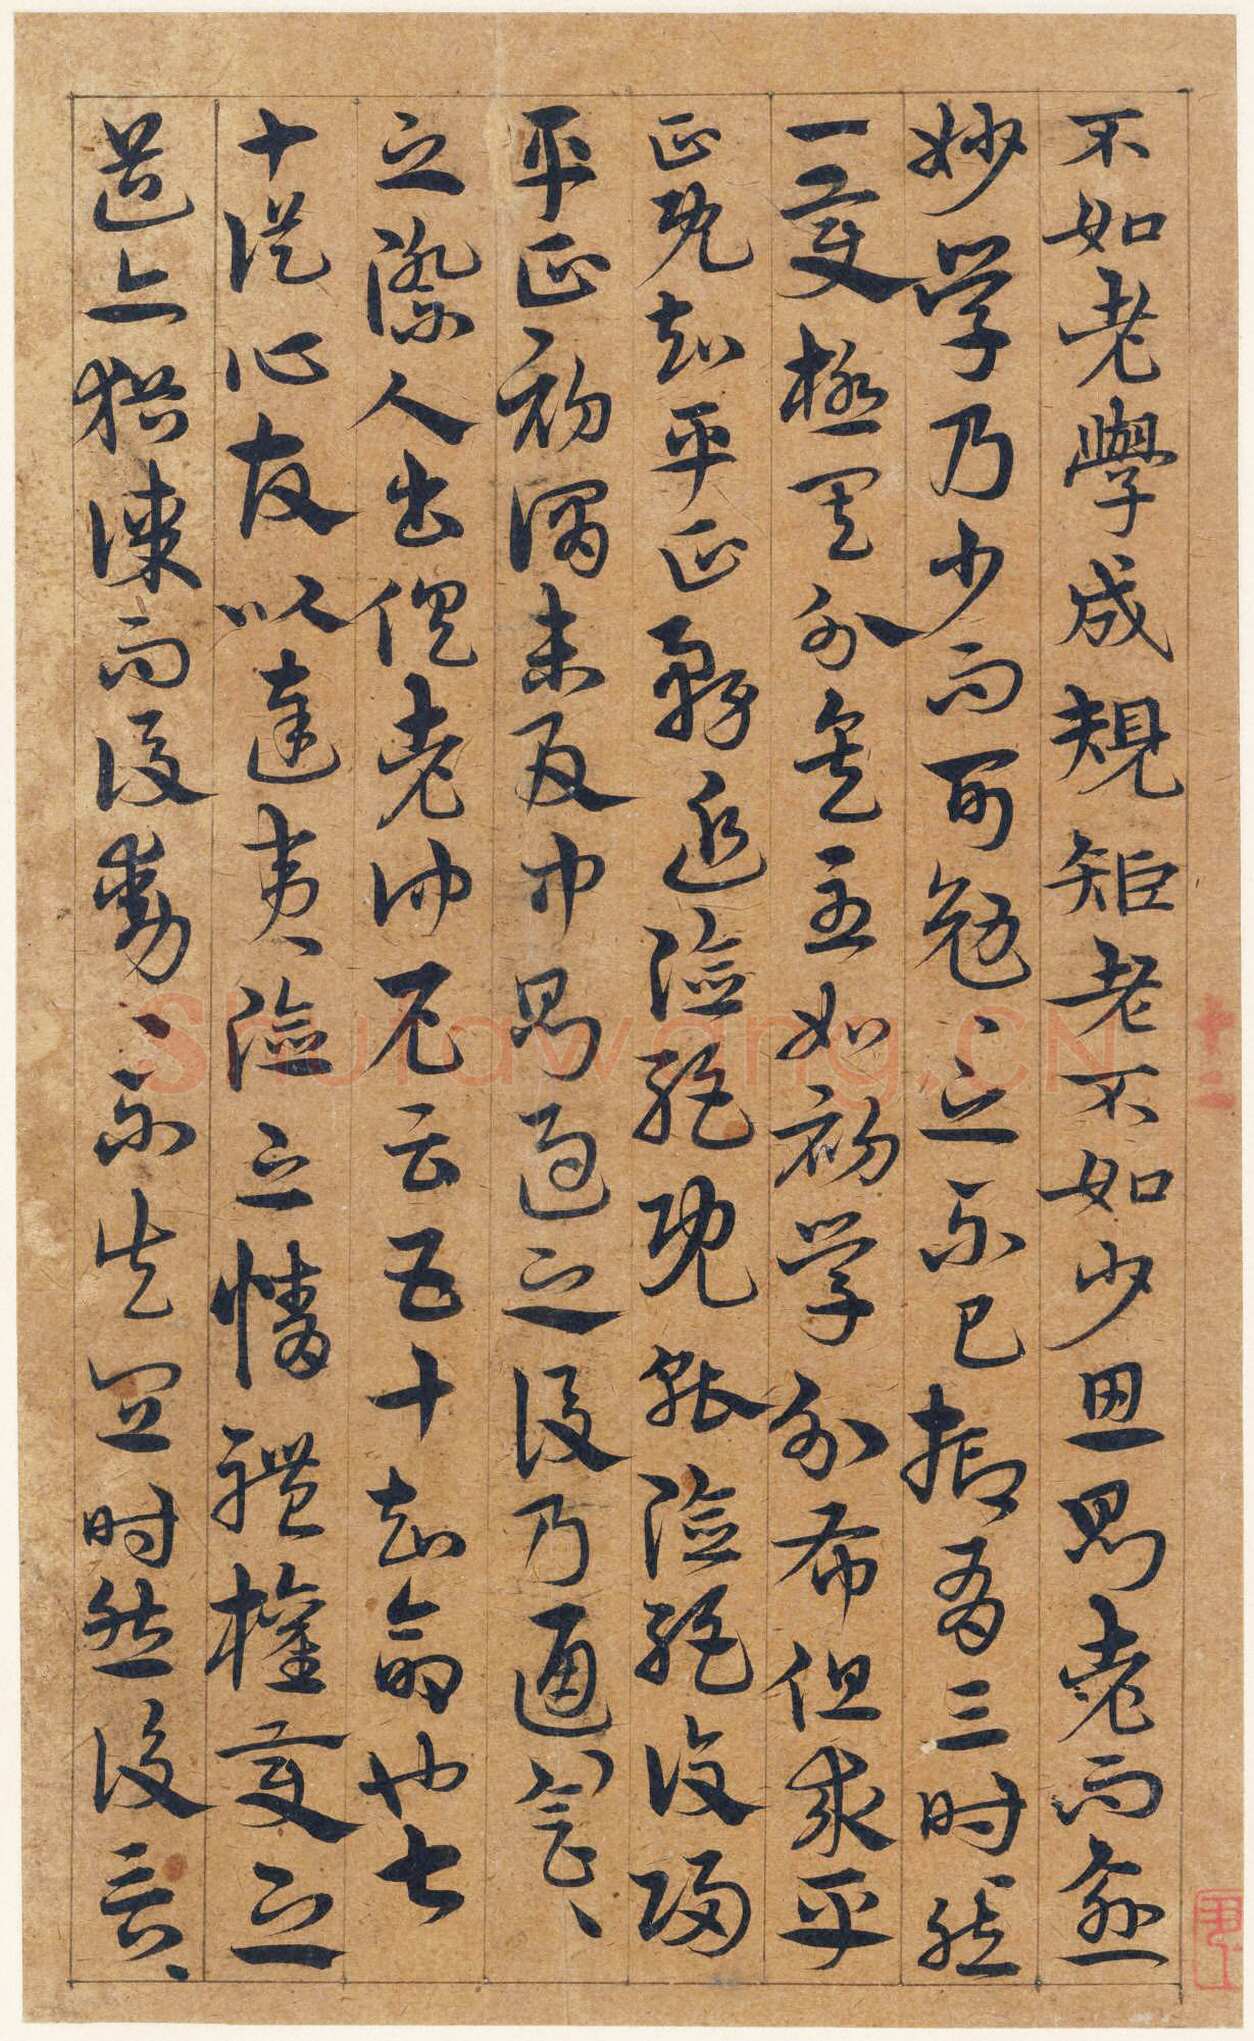 不如老學成規矩老不如少思則老而逾
妙學乃少而可勉〻之不已抑有三時然
一變極其分矣至如初學分布但求平
正既知平正務追險絕既能險絕復歸
平正初謂未及中則過之後乃通〻會〻
之際人書俱老仲尼云五十知命也七
十從心故以達夷險之情體權變之
道亦猶謀而後動〻不失宜時然後言〻
十二
Shufawang.CN